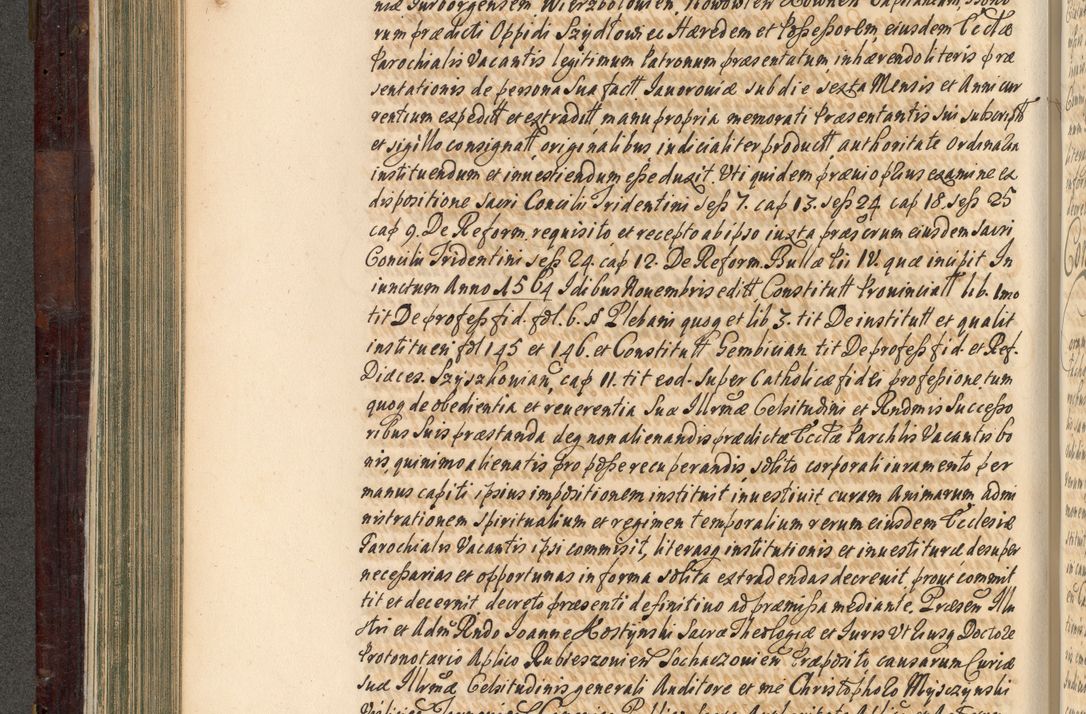 niæ Jurborgensem Wierzbolovien Nowowlen Kownen Capitaneum, Bono
rum prædicti Oppidi Szydłowiec Hæredem et Possessorem, eiusdem Ecctæ
Parochialis Vacantis legitimum Patronum præsentatum inhærendo literis præ
sentationis de persona Sua factt Javoroviæ sub die sexta Mensis et Anni cur
rentium expeditt et extraditt manu propria memorati Præsentantis Sui subscriptt
et sigillo consignatt originalibus iudicialiter productt authoritate Ordinalia
instituendum et investiendum esse duxit. Uti quidem prævio plius examine ex
dispositione Sacri Concilii Tridentini Seſs 7. cap 13. Seſs 24 cap 18. Seſs 25
cap 9. De Reform. requisito et recepto ab ipso iuxta præscrum eiusdem Sacri
Concilii Tridentini Seſs 24. cap 12. De Reform. Bullæ Pii IV. quæ incipit In
iunctum Anno 1564 Idibus Novembris editt Constitutt Provinciatt lib. Imo
tit De profeſs fid. fol. 6. § Plebani quoq et lib 3. tit De institutt et qualit
instituen fol 145 et 146. et Constitutt Gembician tit De profeſs fid. et Ref.
Diæces. Szyszkovian, cap 11. tit eod. Super Catholicæ fidei profeſsione tum
quoq de obedientia et reverentia Suæ Illrmæ Celsitudini et Rndmis Succeſso
ribus Suis præstanda deq non alienandis prædictæ Ecctæ Parchlis Vacantis bo
nis, quinimo alienatis pro poſse recuperandis, solito corporali iuramento per
manus capiti ipsius impositionem instituit investivit curam Animarum admi
nistrationem Spiritualium et regimen temporalium rerum eiusdem Ecclesiæ
Parochialis Vacantis ipsi commisit, literasq institutionis et investituræ desuper
neceſsarias et opportunas in forma solita extradendas decrevit prout commit
tit et decernit decreto præsenti definitivo ad præmiſsa mediante. Præsen Illu
stri et Adm Rndo Joanne Hostynski Sacræ Theologiæ et Juris Utriusq Doctore
Protonotario Aplico Rubieszovien Sochaczovien Præposito causarum Curiæ
Suæ Illrmæ Celsitudinis generali Auditore et me Christopholo Mysczynski